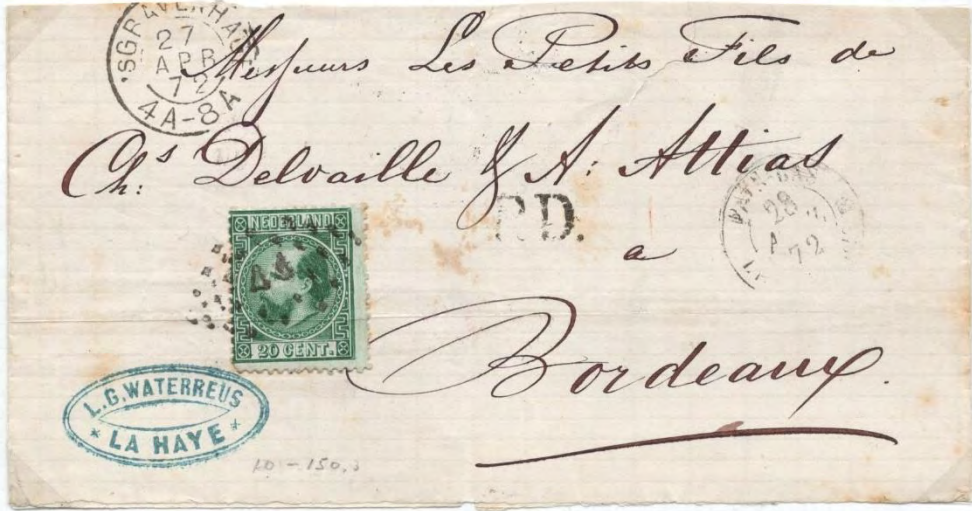 'SGRAVENHAGE
27
APR
72
4A-8A
Messieurs Les Petits Fils de
Ch.s Delvaille & A: Attias
P.D.
28
72
a
NEDERLAND
44
20 CENT.
Bordeaux.
L.G. WATERREUS
* LA HAYE *